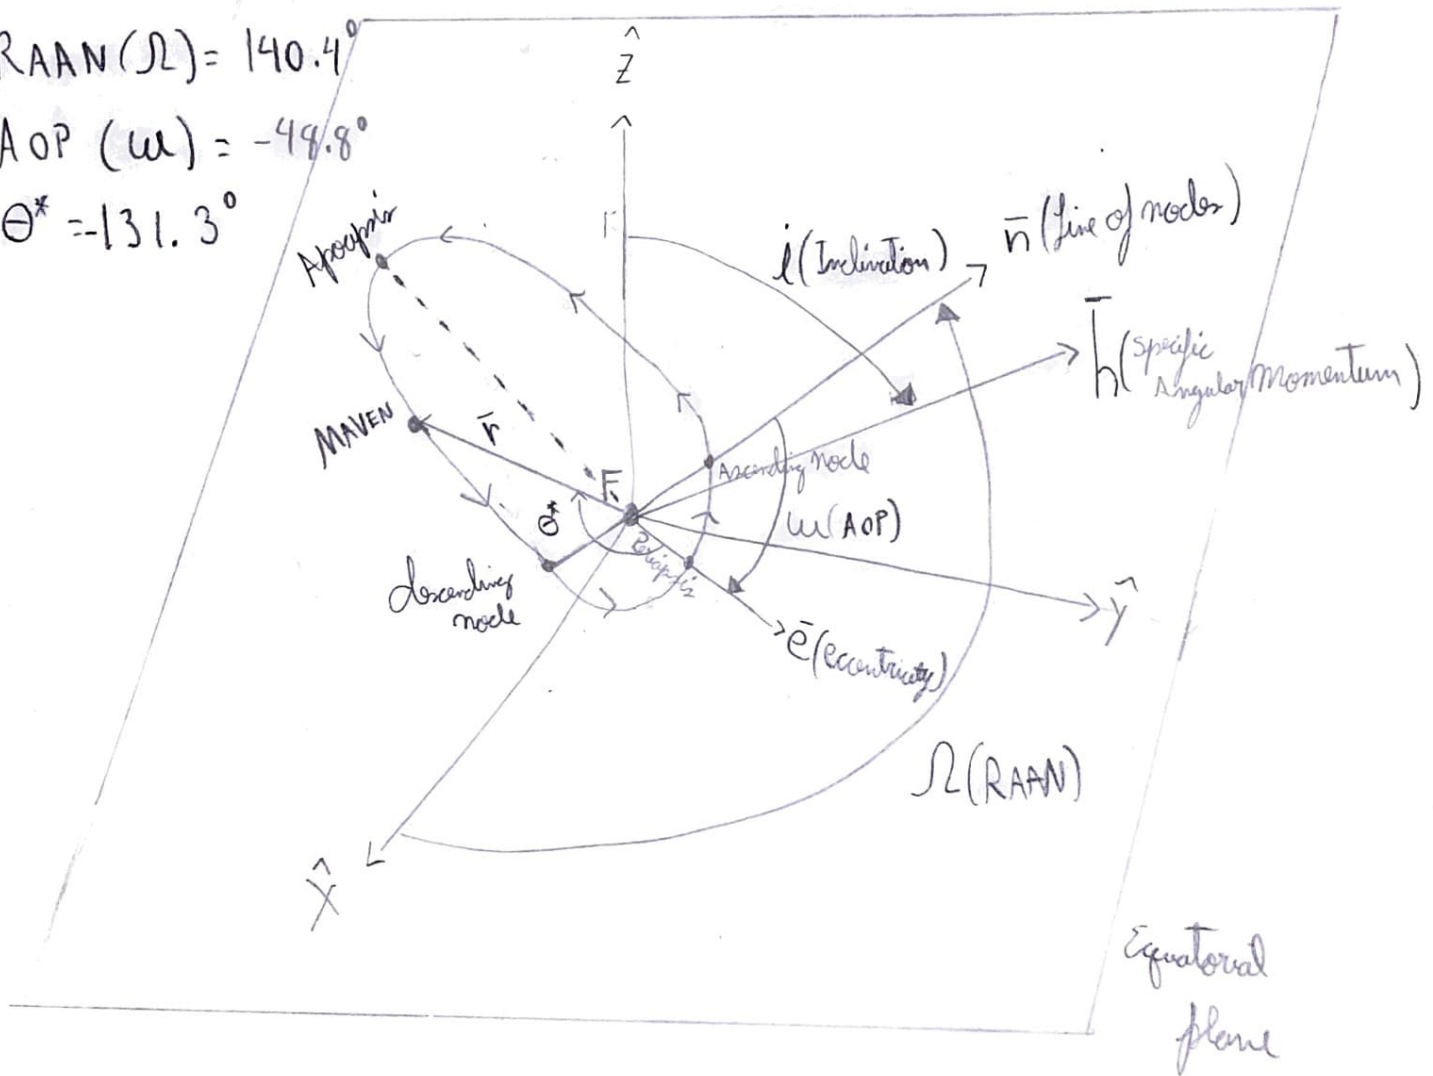 RAAN(Ω)= 140.4°
AOP (ω) = -48.8°
θ* =-131.3°
Ẑ
Apoapsis
i(Inclination)
n̄(Line of nodes)
h̄(Specific
Angular Momentum)
MAVEN
r̄
F
Ascending node
θ*
ω(AOP)
Periapsis
descending
node
ŷ
ē(eccentricity)
Ω(RAAN)
X̂
Equatorial
plane